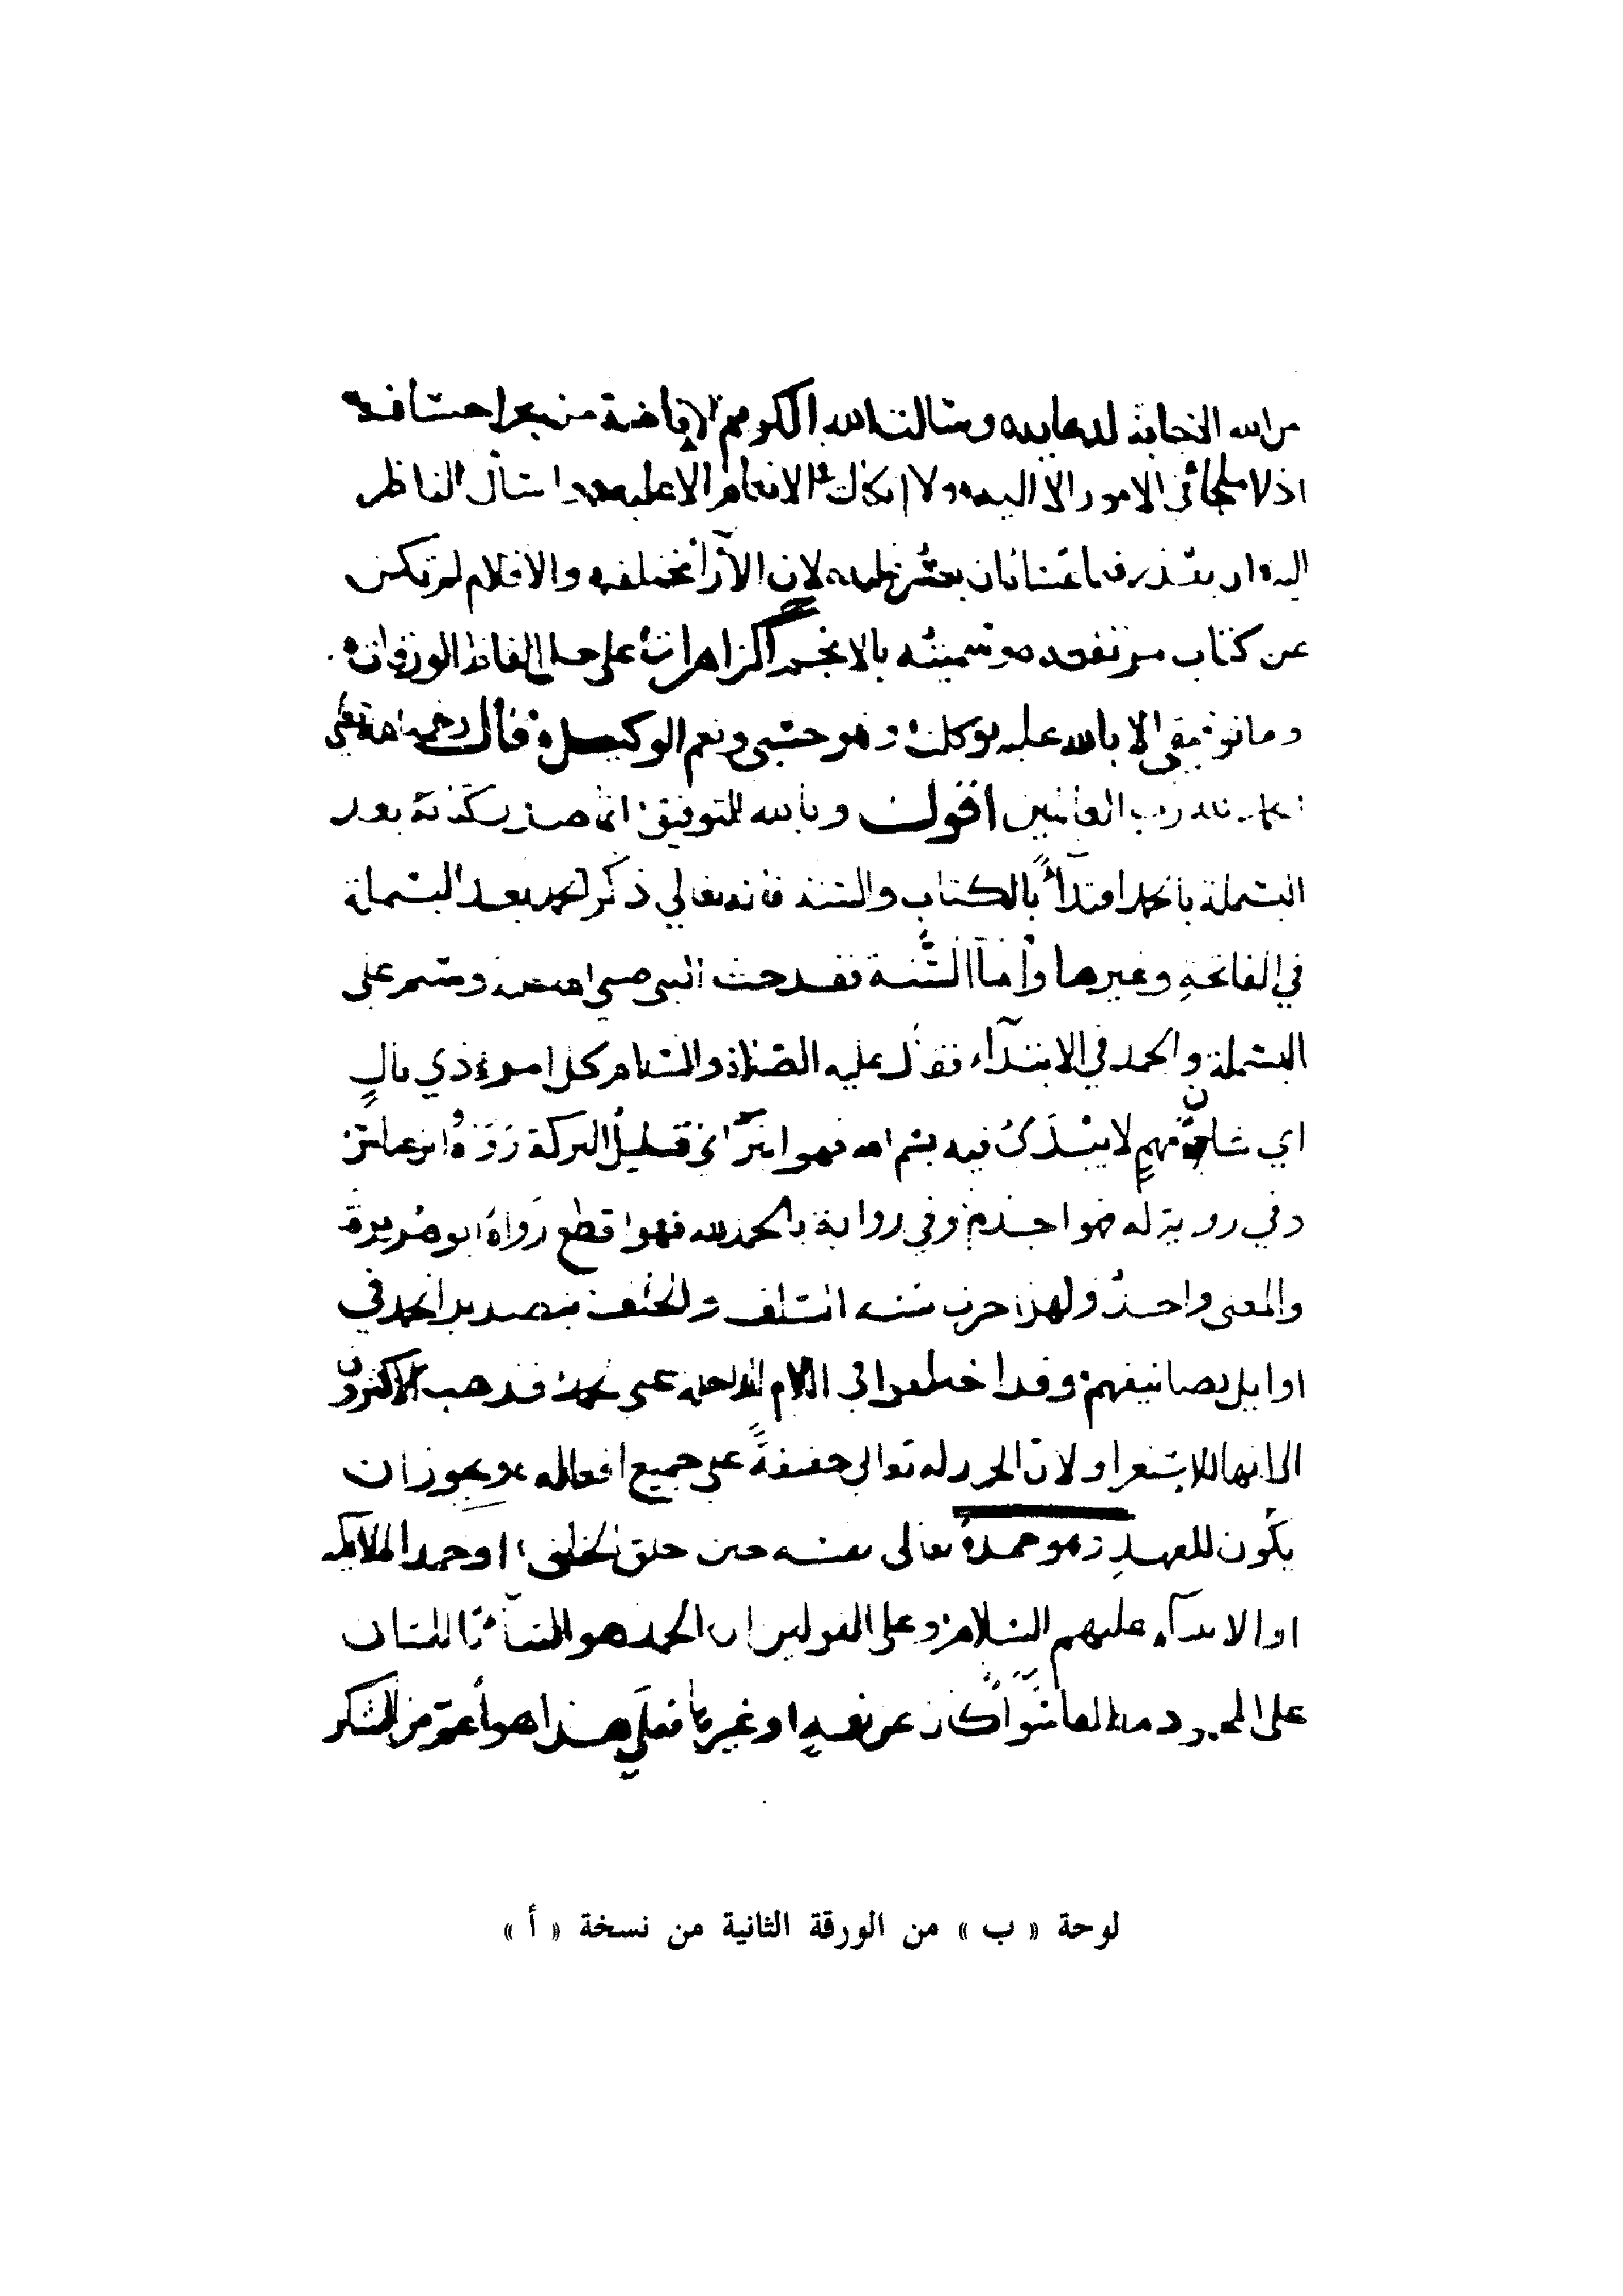 من الله الاجابة لدعايه وسالت الله الكريم الافاضة من بحر احسانه
اذ لا ملجأ في الامور الا اليه ولا اتكال في الانعام الا عليه اسأل الناظر
اليه ان لان الآرآ مختلفة والاقلام لم تكن
عن كتاب وسميته بالانجم الزاهرات على حل الفاظ الورقات
وما توفيقي الا بالله عليه توكلت وهو حسبي ونعم الوكيل قال رحمه الله تعالى
الحمد لله رب العالمين اقول وبالله التوفيق انما صدر كتابه بعد
البسملة بالحمد اقتدآء بالكتاب والسنة فانه تعالي ذكر الحمد بعد البسملة
في الفاتحة وغيرها وأما السُّنة فقد حث النبي صلى الله عليه وسلم على
البسملة والحمد في الابتدآء فقال عليه الصلاة والسلام كل امرء ذي بالٍ
اي شان مهم لا يبتدئ فيه ببسم الله فهو ابتر اي قليل البركة رَوَاهُ ابن عباس
وفي رواية له فهو اجذم وفي رواية بالحمد لله فهو اقطع رَوَاهُ ابو هُريرة
والمعنى واحدٌ ولهذا جرت سنة السلف والخلف بتصدير الحمد في
اوايل تصانيفهم وقد اختلفوا في اللام الداخلة على الحمد فذهب الاكثرون
الى انها للاستغراق لان الحمد له تعالى حقيقةً على جميع افعاله ويجوز ان
يكون للعهد وهو حمدهُ تعالى نفسه حين خلق الخلق او حمد الملايكة
او الانبيآء عليهم السلام وعلى القولين ان الحمد هو الثنآء باللسان
على المحمود سوآء كان عن نعمةٍ او غيرها فعلى هذا هو أعم من الشكر
لوحة « ب » من الورقة الثانية من نسخة « أ »